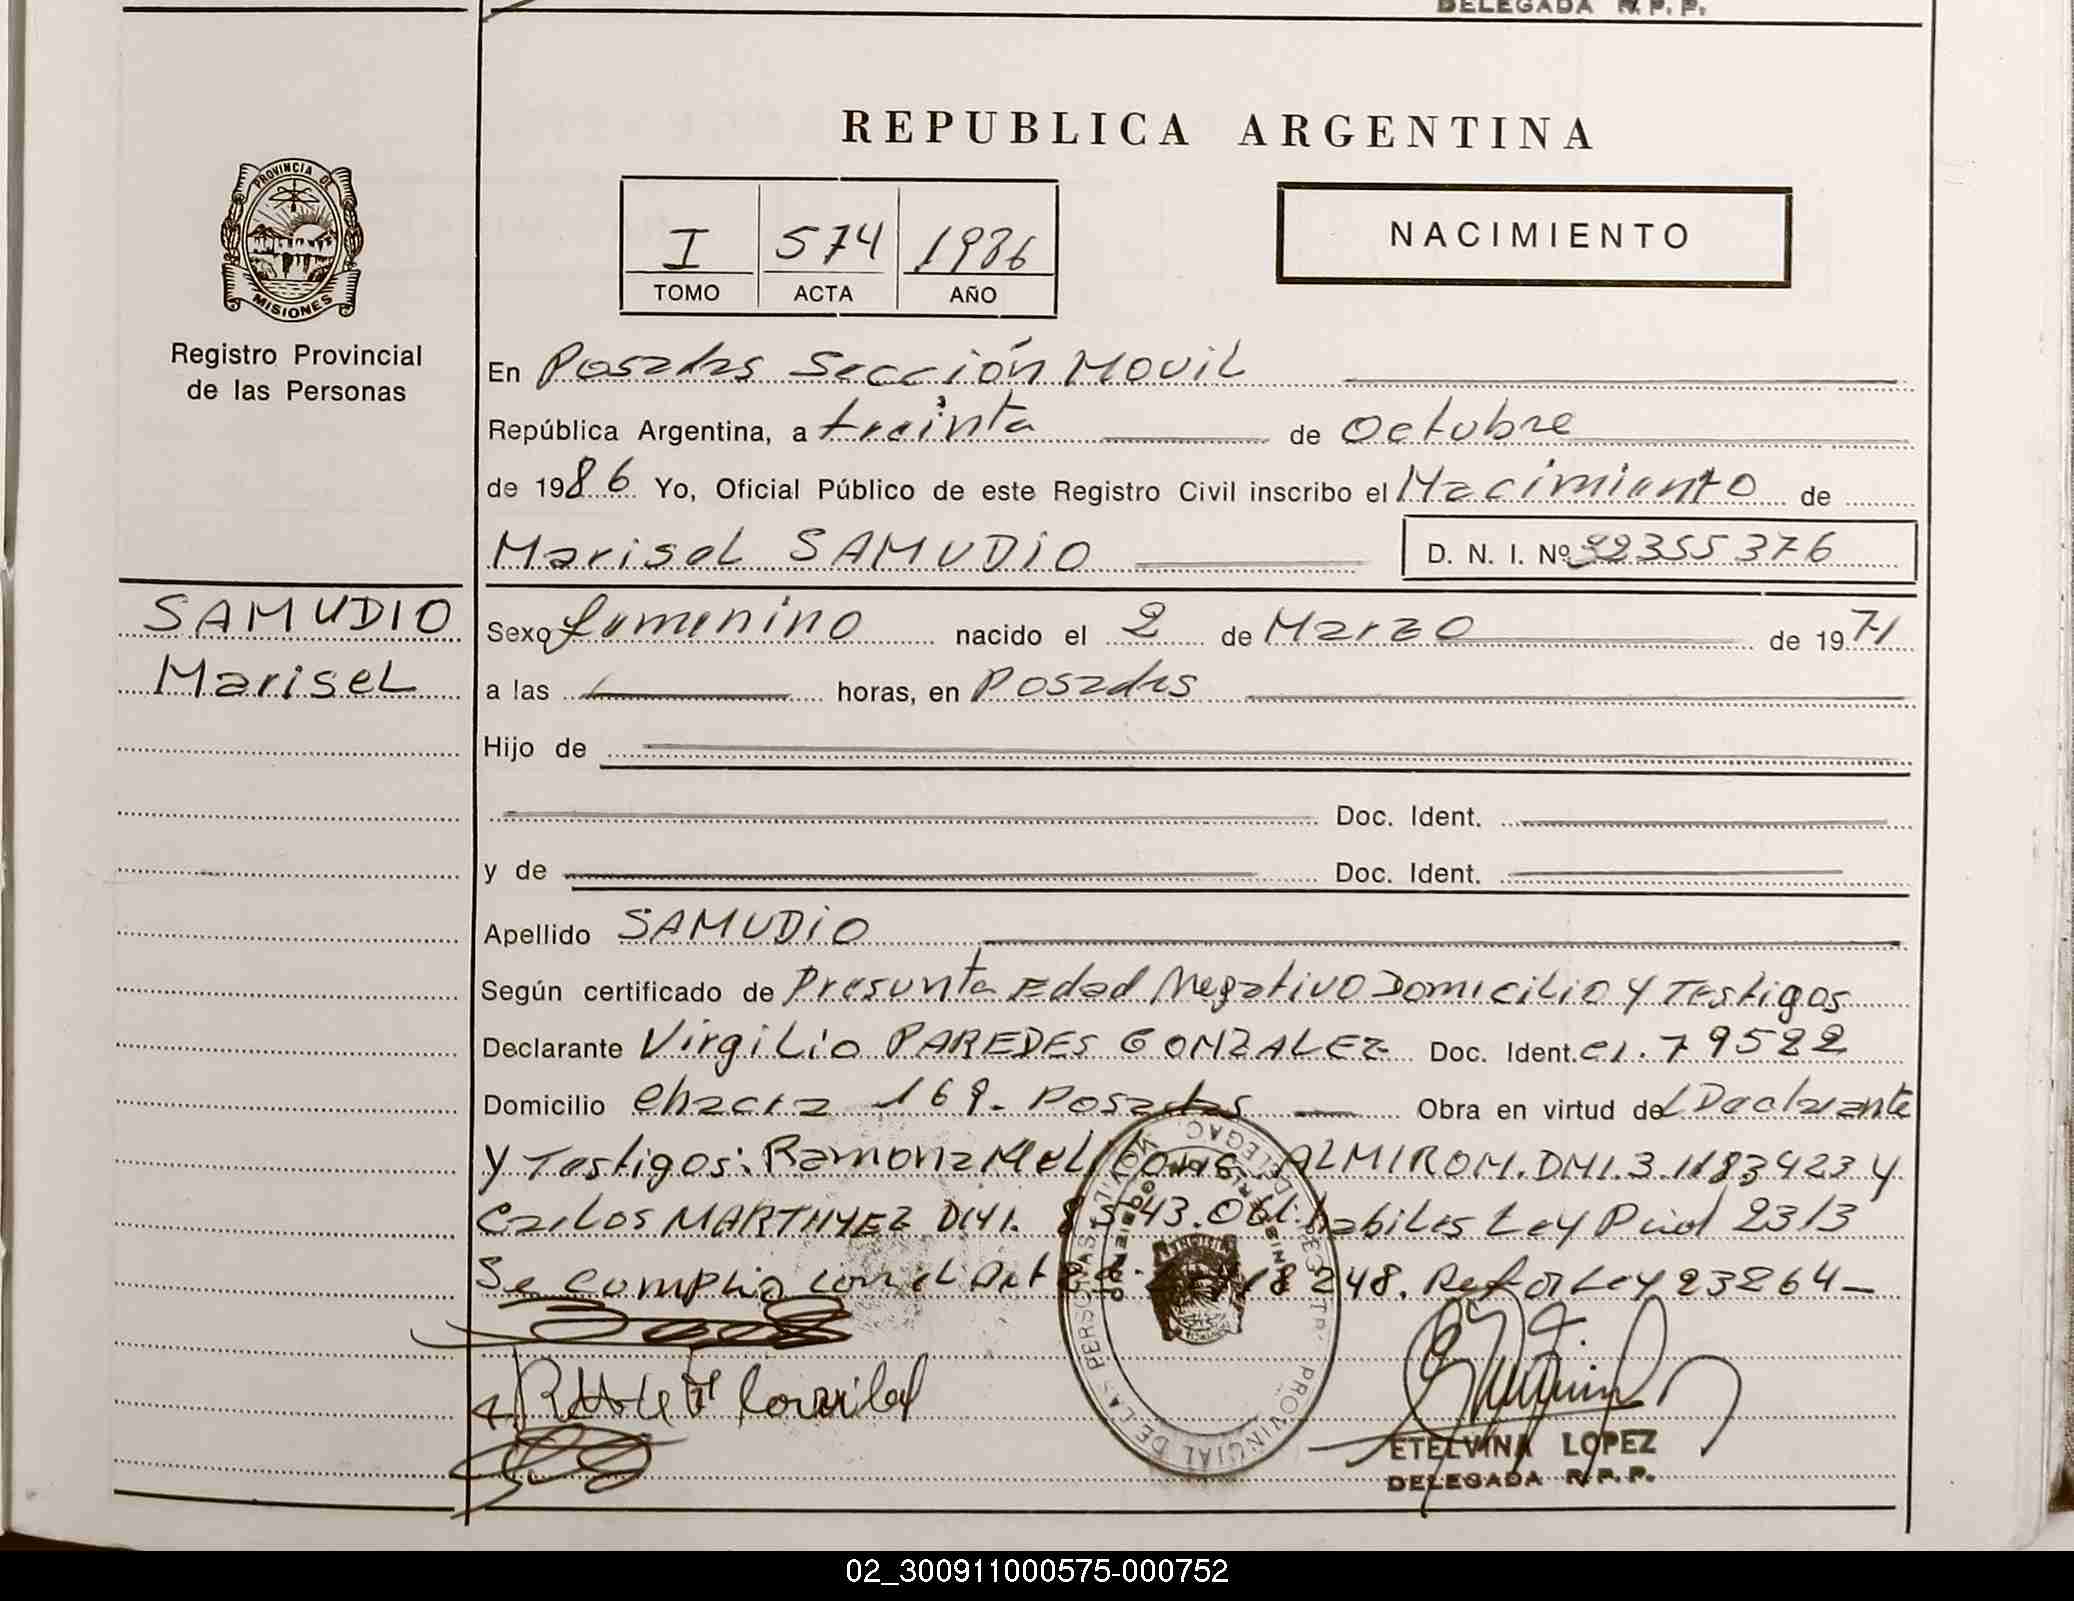 DELEGADA R.P.P.
REPUBLICA ARGENTINA
PROVINCIA DE
MISIONES
Registro Provincial
de las Personas
I 574 1986
TOMO ACTA AÑO
NACIMIENTO
En Posadas Sección Movil
República Argentina, a treinta de Octubre
de 1986 Yo, Oficial Público de este Registro Civil inscribo el Nacimiento de
Marisel SAMUDIO D. N. I. Nº 92355376
SAMUDIO
Marisel
Sexo femenino nacido el 2 de Marzo de 1971
a las horas, en Posadas
Hijo de
Doc. Ident.
y de Doc. Ident.
Apellido SAMUDIO
Según certificado de Presunta Edad Negativo Domicilio y Testigos
Declarante Virgilio PAREDES GONZALEZ Doc. Ident. CI. 79522
Domicilio Chacra 169. Posadas Obra en virtud del Declarante
y Testigos: Ramona ALMIRON. DNI. 3.1183423 y
Carlos MARTINEZ DNI. 8.543.061. habiles Ley Pcial 2313
Se cumplio con el Art 18248. Refor Ley 23264
REGISTRO PROVINCIAL DE LAS PERSONAS
ETELVINA LOPEZ
DELEGADA R.P.P.
02_300911000575-000752